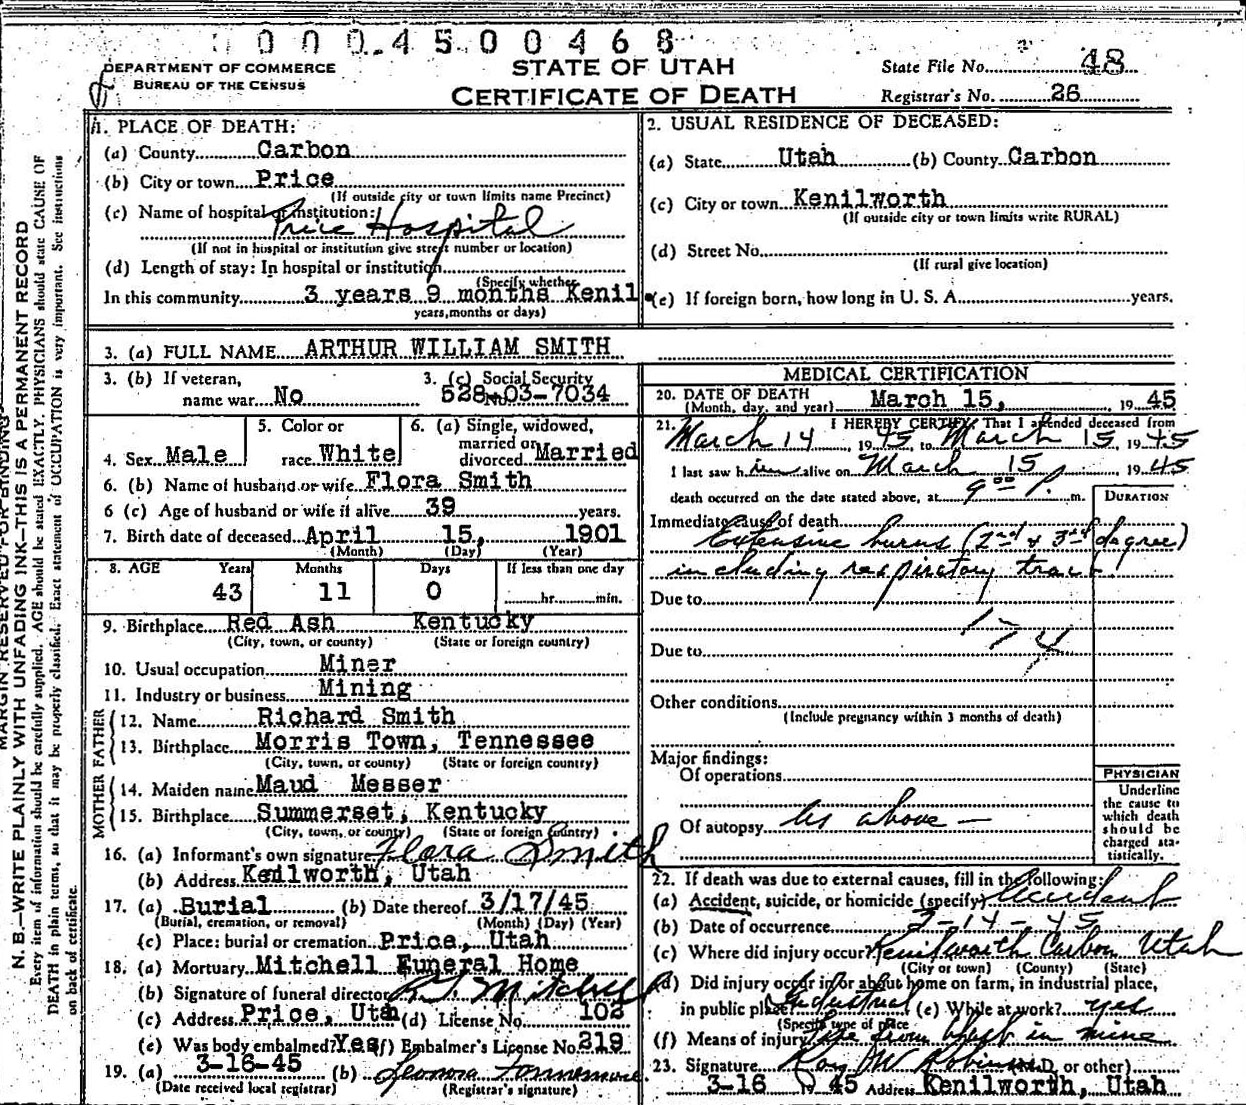 000.4500468
DEPARTMENT OF COMMERCE
BUREAU OF THE CENSUS
STATE OF UTAH
CERTIFICATE OF DEATH
State File No. 48
Registrar's No. 26
MARGIN RESERVED FOR BINDING
N. B.—WRITE PLAINLY WITH UNFADING INK—THIS IS A PERMANENT RECORD
Every item of information should be carefully supplied. AGE should be stated EXACTLY. PHYSICIANS should state CAUSE OF
DEATH in plain terms, so that it may be properly classified. Exact statement of OCCUPATION is very important. See instructions
on back of certificate.
1. PLACE OF DEATH:
(a) County Carbon
(b) City or town Price
(If outside city or town limits name Precinct)
(c) Name of hospital or institution:
Price Hospital
(If not in hospital or institution give street number or location)
(d) Length of stay: In hospital or institution
(Specify whether
In this community 3 years 9 months Kenil.
years, months or days)
2. USUAL RESIDENCE OF DECEASED:
(a) State Utah (b) County Carbon
(c) City or town Kenilworth
(If outside city or town limits write RURAL)
(d) Street No.
(If rural give location)
(e) If foreign born, how long in U. S. A. years.
3. (a) FULL NAME ARTHUR WILLIAM SMITH
3. (b) If veteran,
name war No
3. (c) Social Security
No. 528-03-7034
4. Sex Male
5. Color or
race White
6. (a) Single, widowed,
married or
divorced Married
6. (b) Name of husband or wife Flora Smith
6 (c) Age of husband or wife if alive 39 years.
7. Birth date of deceased April 15, 1901
(Month) (Day) (Year)
8. AGE Years Months Days If less than one day
43 11 0 hr. min.
9. Birthplace Red Ash Kentucky
(City, town, or county) (State or foreign country)
10. Usual occupation Miner
11. Industry or business Mining
FATHER
12. Name Richard Smith
13. Birthplace Morris Town, Tennessee
(City, town, or county) (State or foreign country)
MOTHER
14. Maiden name Maud Messer
15. Birthplace Summerset, Kentucky
(City, town, or county) (State or foreign country)
16. (a) Informant's own signature Flora Smith
(b) Address Kenilworth, Utah
17. (a) Burial (b) Date thereof 3/17/45
(Burial, cremation, or removal) (Month) (Day) (Year)
(c) Place: burial or cremation Price, Utah
18. (a) Mortuary Mitchell Funeral Home
(b) Signature of funeral director Mitchell
(c) Address Price, Utah (d) License No. 102
(e) Was body embalmed? Yes (f) Embalmer's License No. 219
19. (a) 3-16-45 (b) Leonora
(Date received local registrar) (Registrar's signature)
MEDICAL CERTIFICATION
20. DATE OF DEATH
(Month, day, and year) March 15, 1945
21. I HEREBY CERTIFY That I attended deceased from
March 14 1945, to March 15, 1945
I last saw him alive on March 15 1945
death occurred on the date stated above, at 9 00 P. m.
DURATION
Immediate cause of death
Extensive burns (2nd & 3rd degree)
including respiratory tract.
Due to
174
Due to
Other conditions
(Include pregnancy within 3 months of death)
Major findings:
Of operations
Of autopsy as above —
PHYSICIAN
Underline
the cause to
which death
should be
charged sta-
tistically.
22. If death was due to external causes, fill in the following:
(a) Accident, suicide, or homicide (specify) Accident
(b) Date of occurrence 3-14-45
(c) Where did injury occur? Kenilworth Carbon Utah
(City or town) (County) (State)
(d) Did injury occur in or about home on farm, in industrial place,
in public place? Industrial (e) While at work? yes
(Specify type of place
(f) Means of injury fire from blast in mine
23. Signature Roy W Robinson (M.D. or other)
3-16 1945 Address Kenilworth, Utah